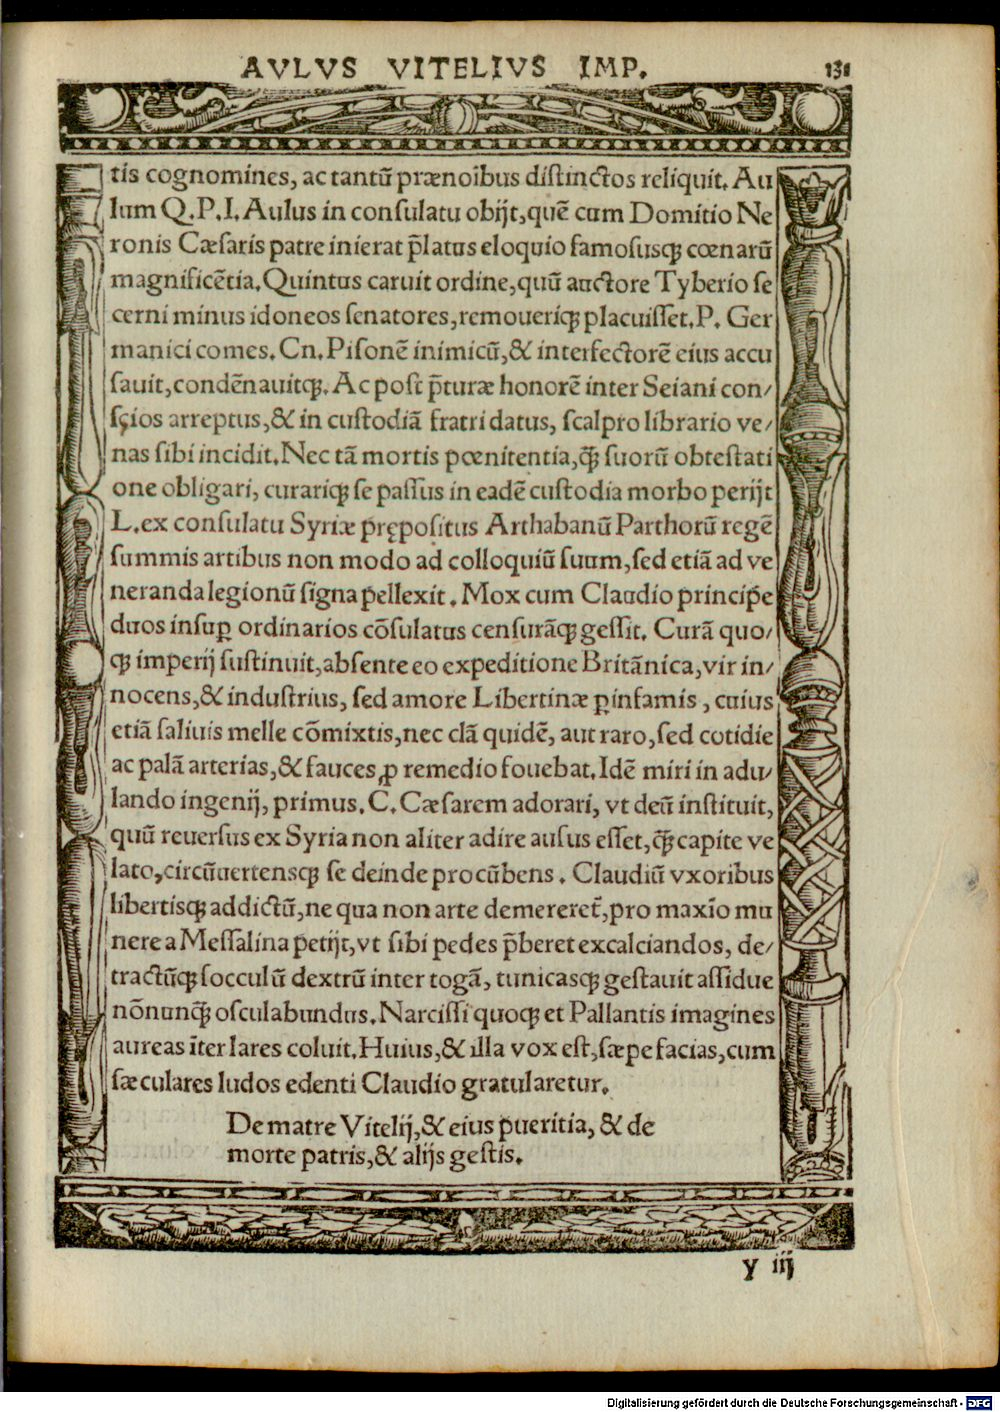 AVLVS VITELIVS IMP. 131
tis cognomines, ac tantū prænoībus distinctos reliquit. Au
lum Q.P.I. Aulus in consulatu obijt, quē cum Domitio Ne
ronis Cæsaris patre inierat p̄latus eloquio famosusqꝫ cœnarū
magnificētia. Quintus caruit ordine, quū auctore Tyberio se
cerni minus idoneos senatores, remouericqꝫ placuisset. P. Ger
manici comes. Cn. Pisonē inimicū, & interfectorē eius accu
sauit, condēnauitqꝫ. Ac post p̄turæ honorē inter Seiani con/
sçios arreptus, & in custodiā fratri datus, scalpro librario ve/
nas sibi incidit. Nec tā mortis pœnitentia, q̄ꝫ suorū obtestati
one obligari, curariqꝫ se passus in eadē custodia morbo perijt
L. ex consulatu Syriæ prępositus Arthabanū Parthorū regē
summis artibus non modo ad colloquiū suum, sed etiā ad ve
neranda legionū signa pellexit. Mox cum Claudio principe
duos insuꝑ ordinarios cōsulatus censurāqꝫ gessit. Curā quo/
qꝫ imperij sustinuit, absente eo expeditione Britānica, vir in/
nocens, & industrius, sed amore Libertinæ ꝑinfamis, cuius
etiā saliuis melle cōmixtis, nec clā quidē, aut raro, sed cotidie
ac palā arterias, & fauces, ꝓ remedio fouebat. Idē miri in adu/
lando ingenij, primus. C. Cæsarem adorari, vt deū instituit,
quū reuersus ex Syria non aliter adire ausus esset, q̄ꝫ capite ve
lato, circūuertensqꝫ se deinde procūbens. Claudiū vxoribus
libertisqꝫ addictū, ne qua non arte demereret̄, pro maxīo mu
nere a Messalina petijt, vt sibi pedes p̄beret excalciandos, de/
tractūqꝫ socculū dextrū inter togā, tunicasqꝫ gestauit assidue
nōnunq̄ꝫ osculabundus. Narcissi quoqꝫ et Pallantis imagines
aureas īter lares coluit. Huius, & illa vox est, sæpe facias, cum
sæculares ludos edenti Claudio gratularetur.
De matre Vitelij, & eius pueritia, & de
morte patris, & alijs gestis.
y iij
Digitalisierung gefördert durch die Deutsche Forschungsgemeinschaft - DFG